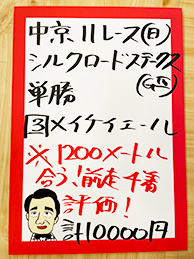 中京11レース(日)
シルクロードステークス
(GⅢ)
単勝
3メイケイエール
※1200メートル
合う!前走4着
評価!
10000円